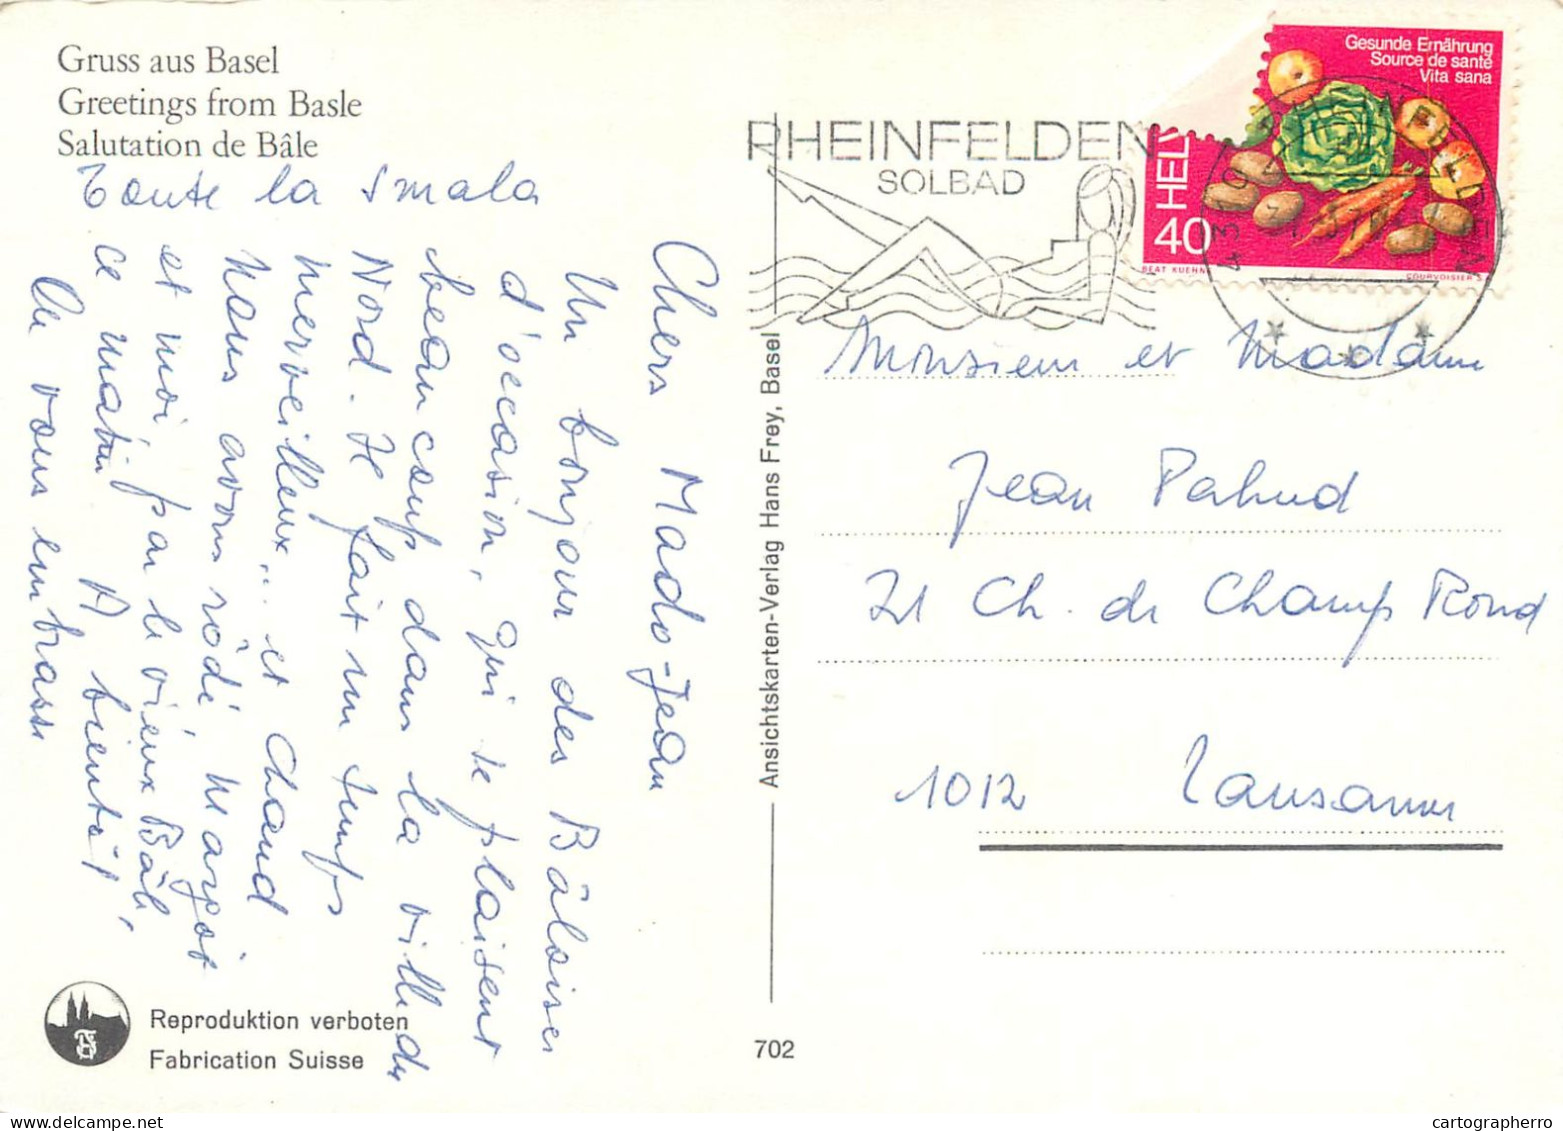 Gruss aus Basel
Greetings from Basle
Salutation de Bâle
Toute la smala
Chers Mado-Jean
Un bonjour des Bâloises
d'occasion, qui se plaisent
beaucoup dans la ville du
Nord. Il fait un temps
merveilleux... et chaud
Nous avons rôdé Margot
et moi par le vieux Bâle
ce matin. A bientôt,
On vous embrasse
Reproduktion verboten
Fabrication Suisse
Ansichtskarten-Verlag Hans Frey, Basel
702
RHEINFELDEN
SOLBAD
Gesunde Ernährung
Source de santé
Vita sana
HELV
40
BEAT KUEHN
COURVOISIER S.
4310 RHEINFELDEN
Monsieur et Madame
Jean Pahud
21 Ch. de Champ Rond
1012 Lausanne
cartographerro